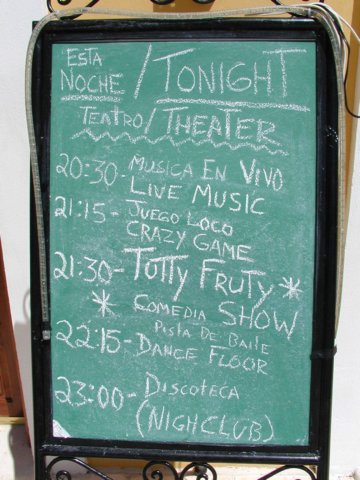 ESTA NOCHE / TONIGHT
TEATRO/THEATER
20:30- MUSICA EN VIVO
LIVE MUSIC
21:15- JUEGO LOCO
CRAZY GAME
21:30- TUTTY FRUTY *
* COMEDIA SHOW
22:15- PISTA DE BAILE
DANCE FLOOR
23:00- DISCOTECA
(NIGHCLUB)